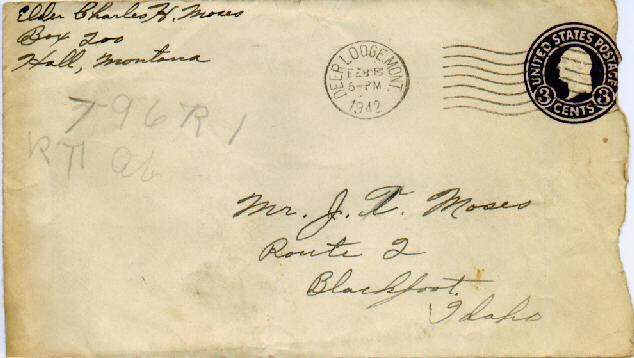 Elder Charles H. Moses
Box 200
Hall, Montana
DEER LODGE, MONT.
FEB
6-PM
1942
UNITED STATES POSTAGE
3 CENTS 3
796R1
Mr. J. T. Moses
Route 2
Blackfoot.
Idaho